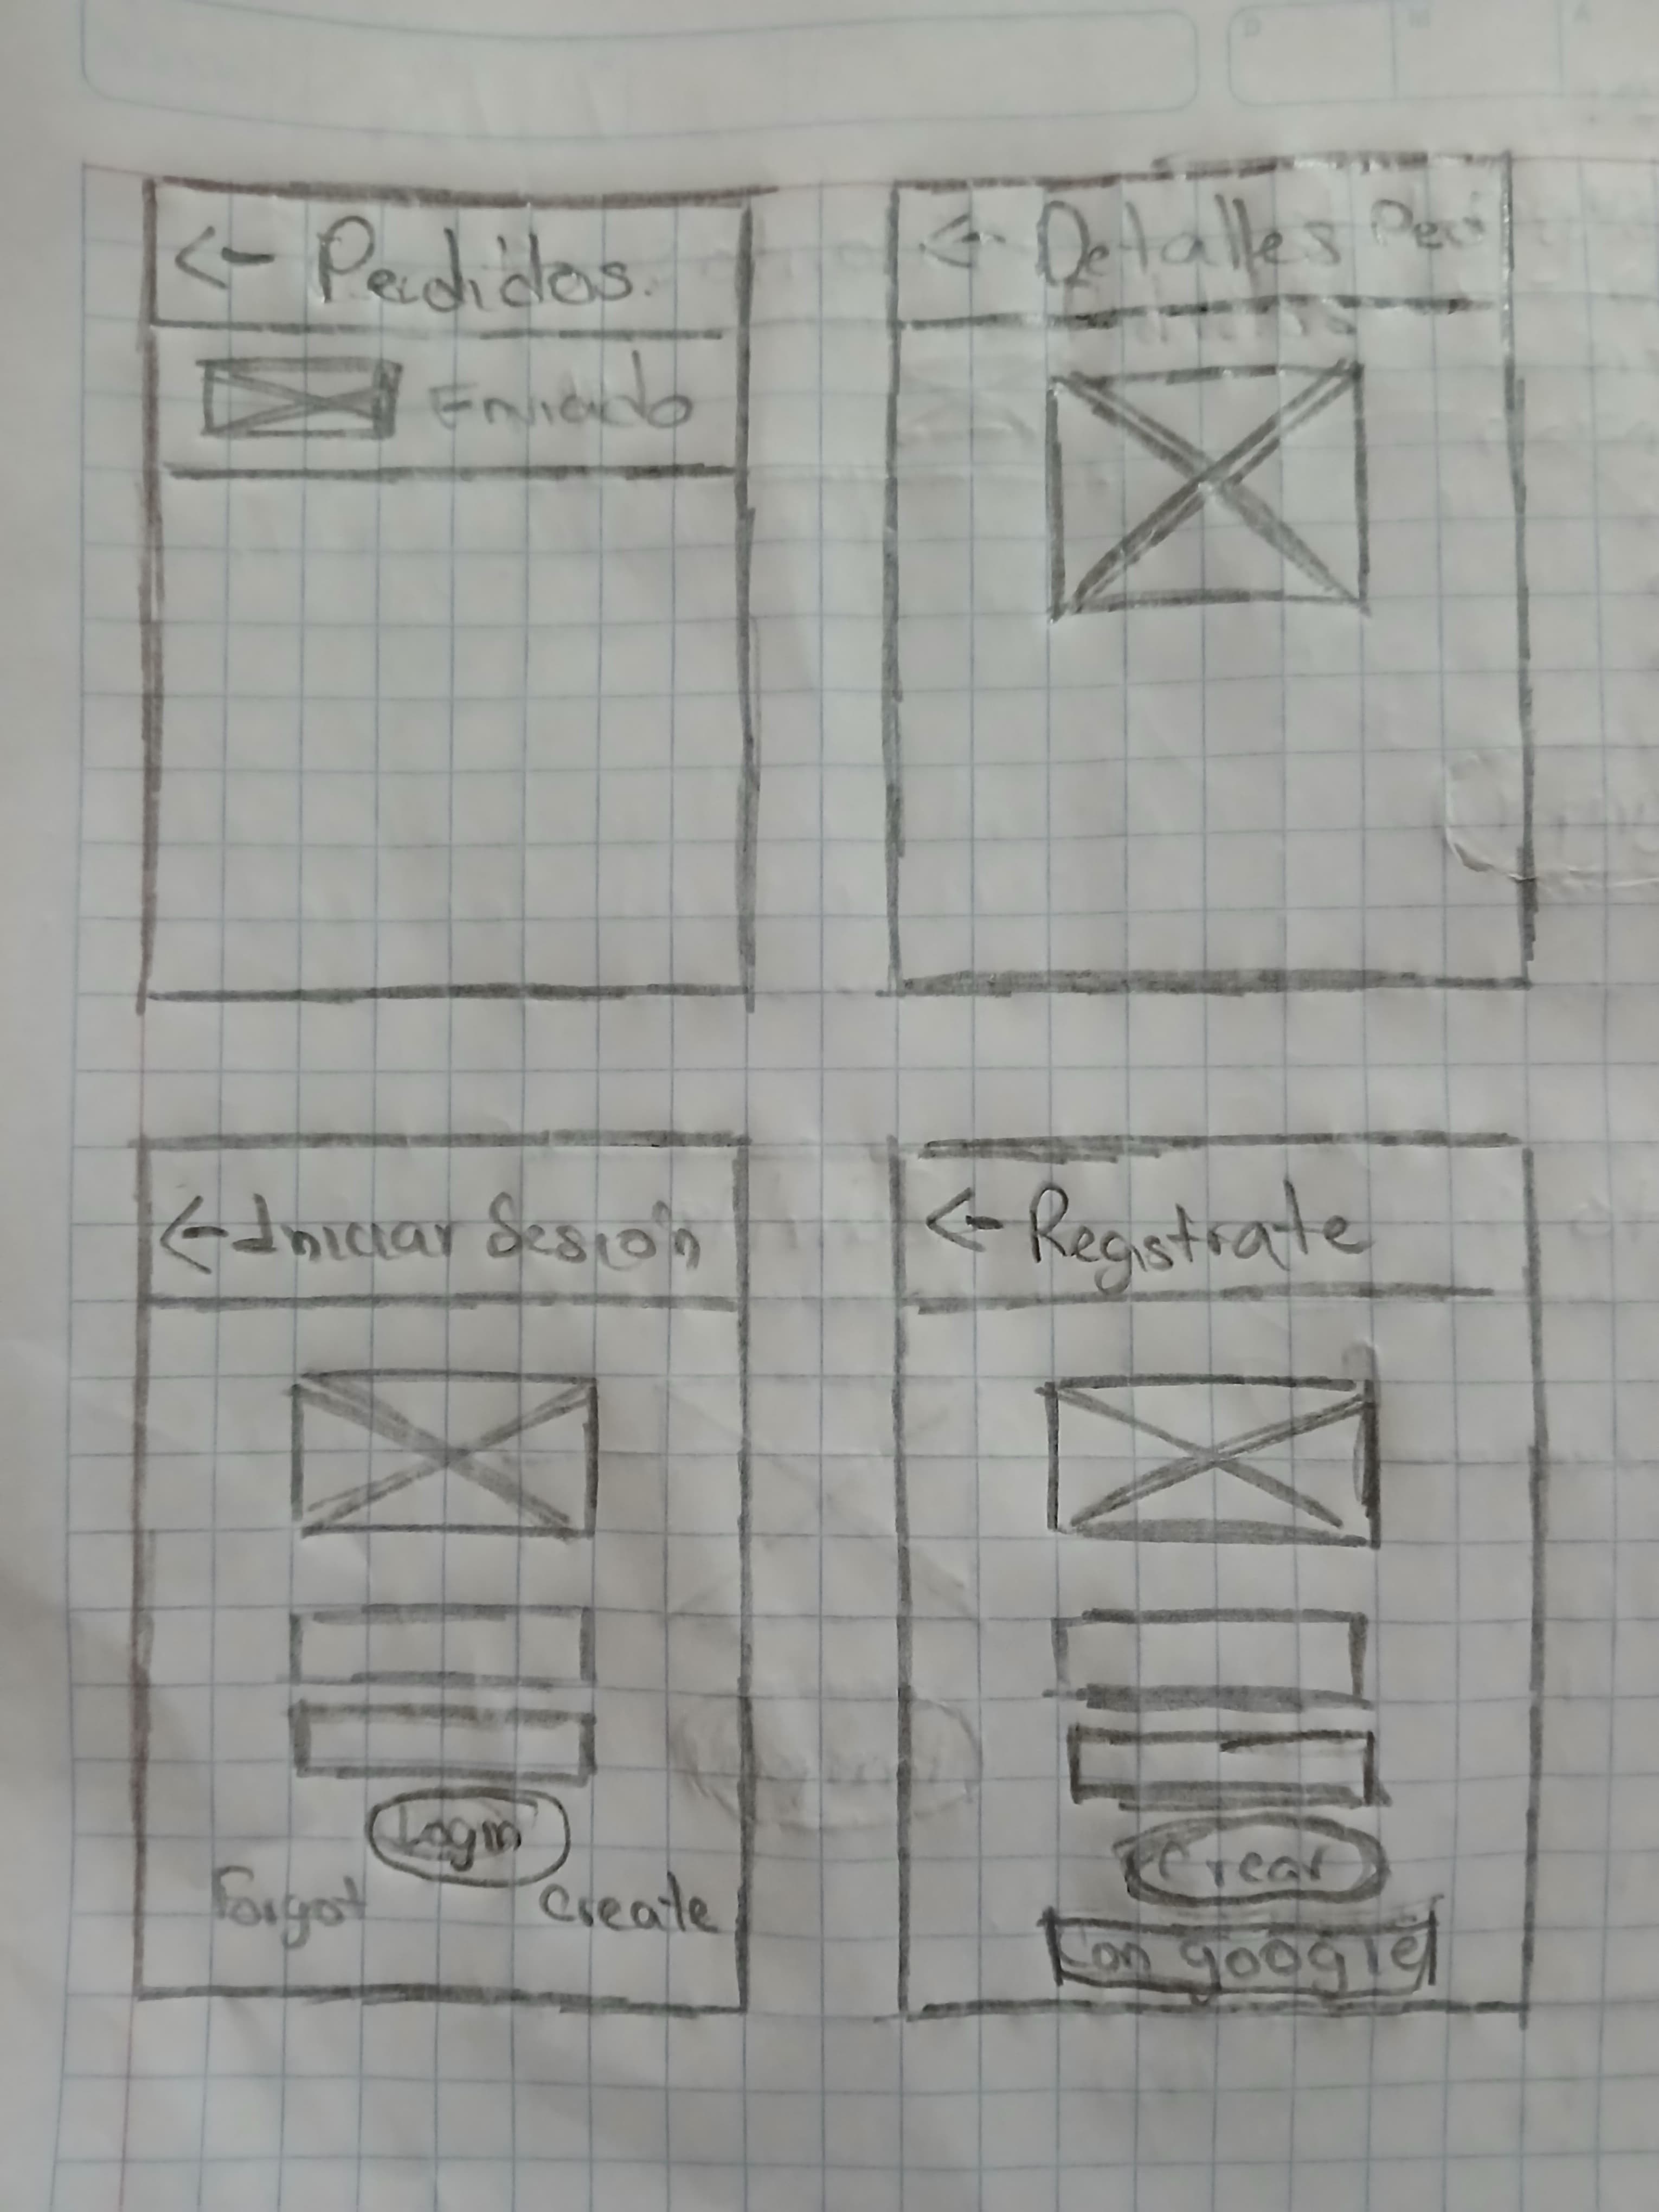 <- Pedidos.
Enviado
<- Detalles Pedi
<- Iniciar Sesión
Login
Forgot
Create
<- Registrate
Crear
Con google